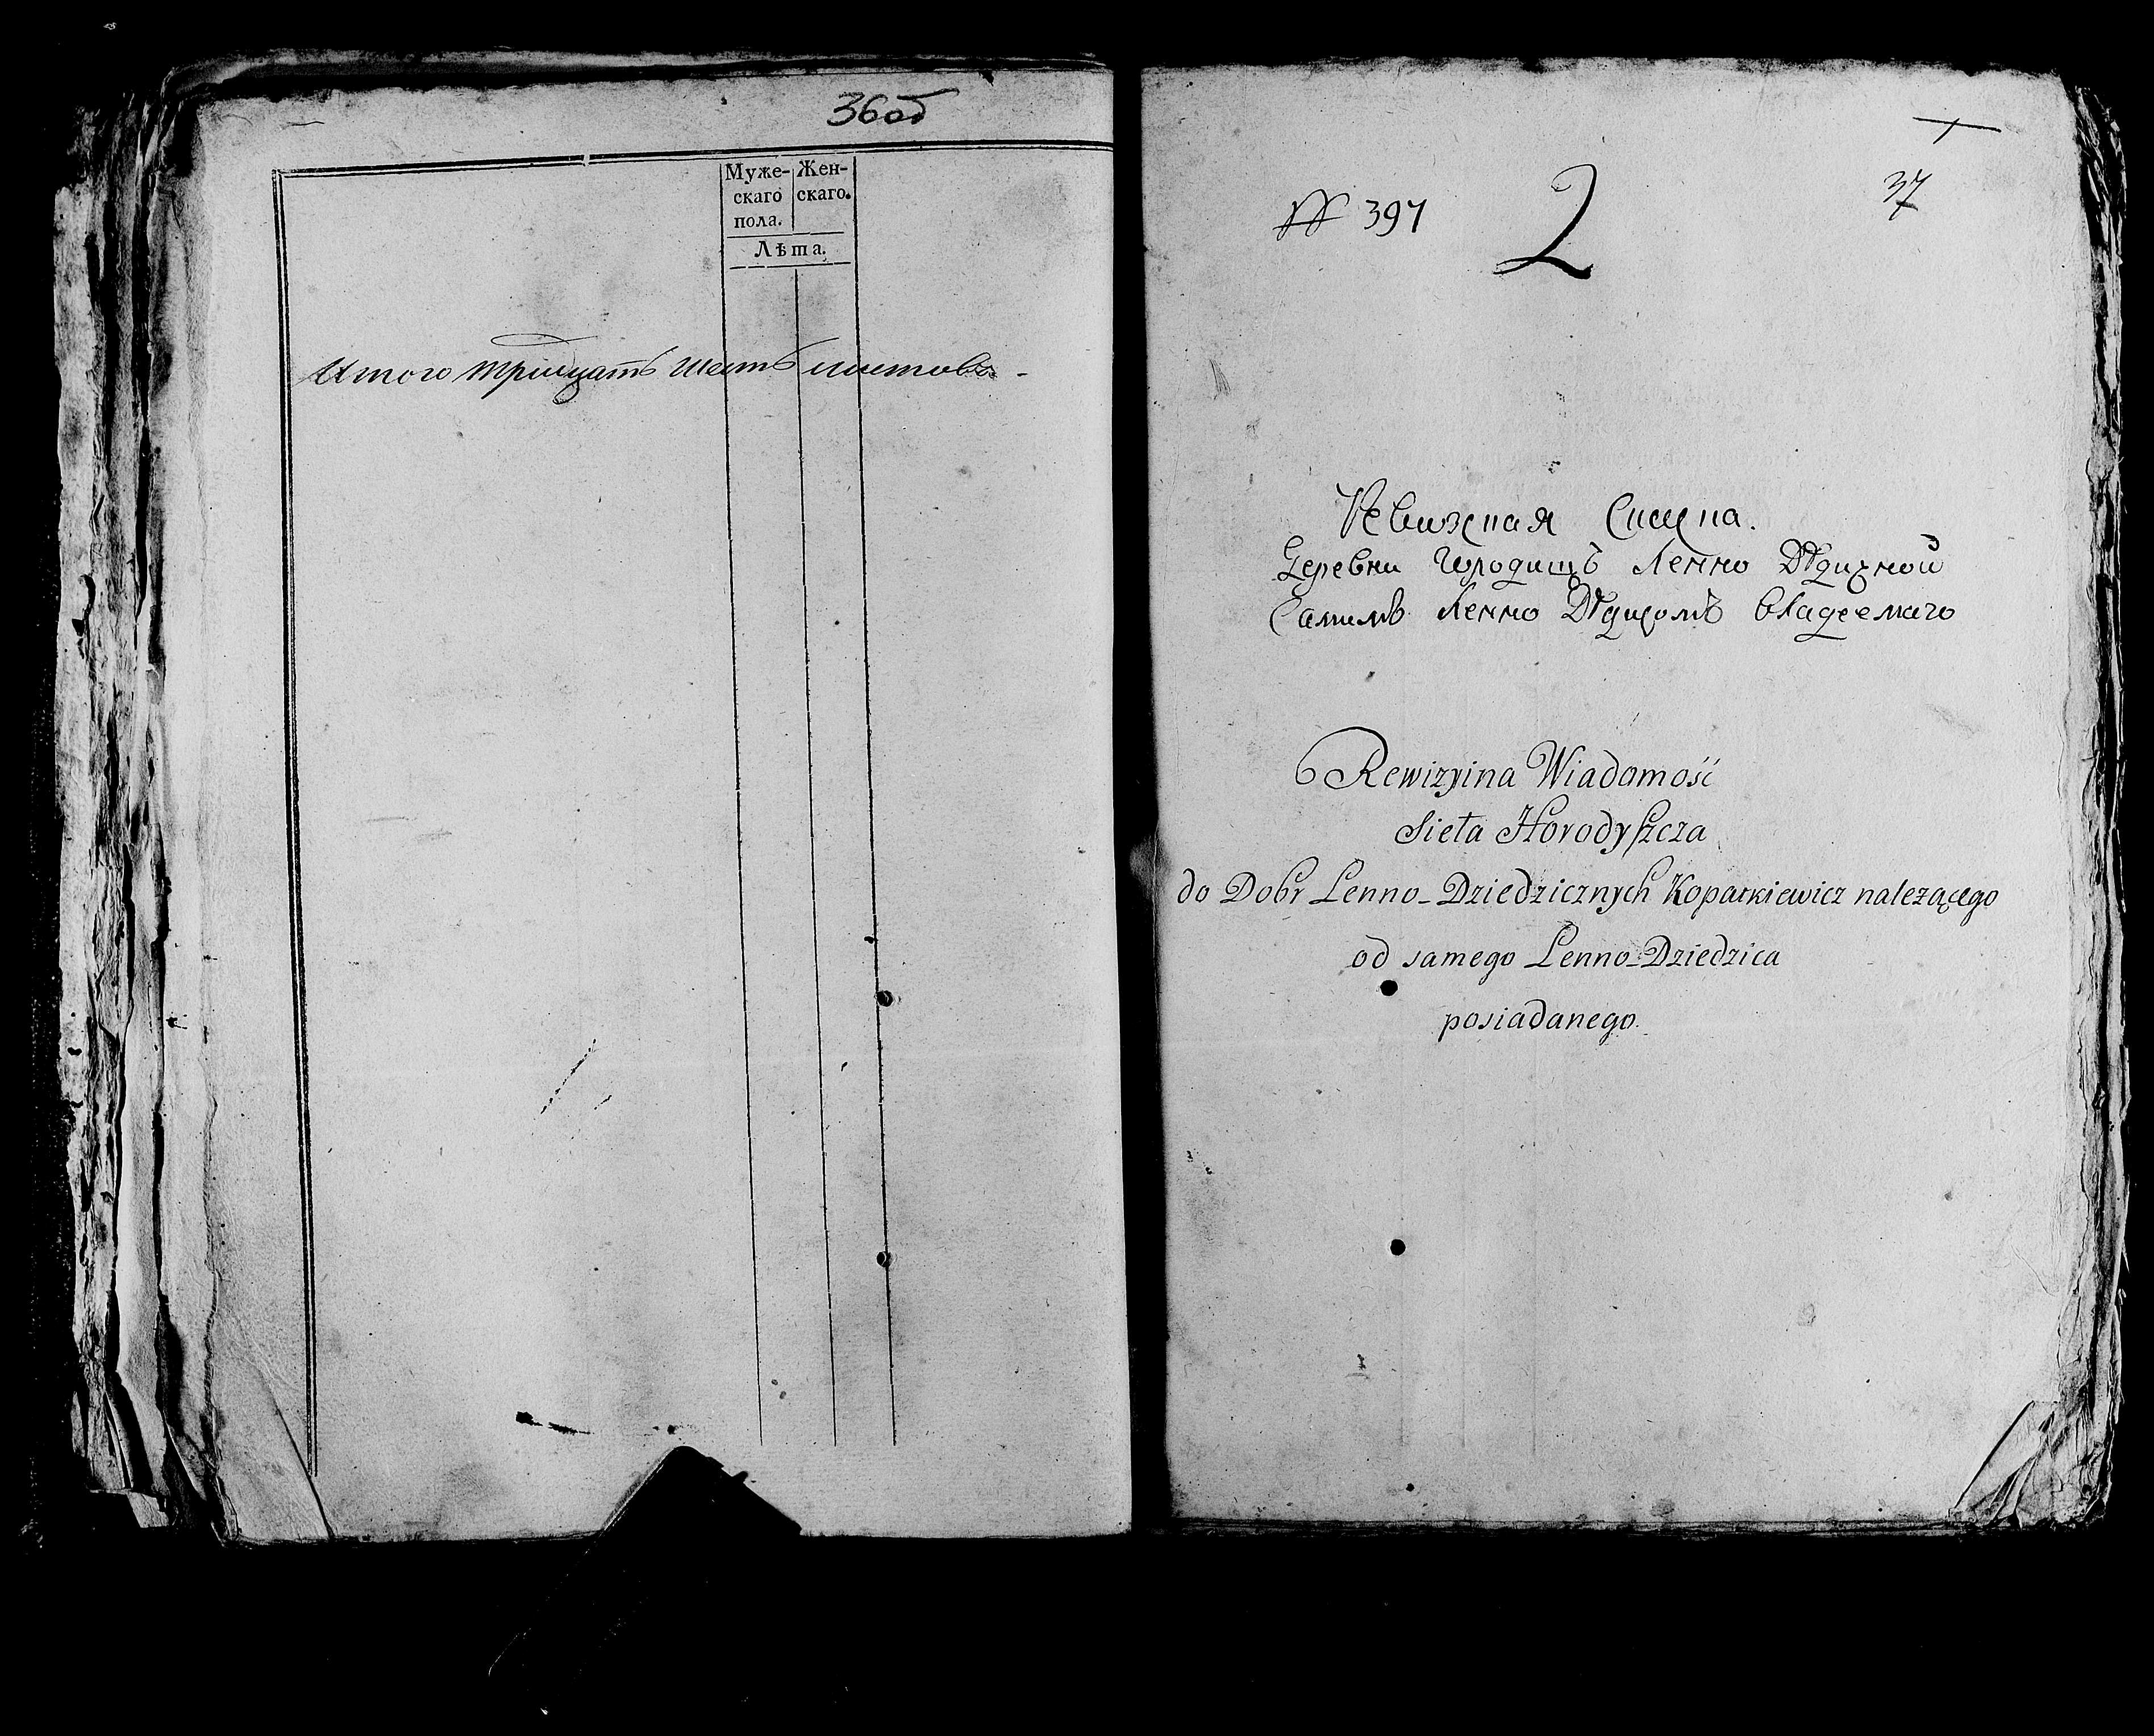 36об
Муже- Жен-
скаго скаго.
пола.
Лѣта.
Итого тридцать шесть листовъ -
№ 397 2 37
Ревизкая Скаска.
Деревни Городищъ Ленно Дѣдичной
Самимъ Ленно Дѣдичомъ владеемаго
Rewizyina Wiadomość
Sieła Horodyszcza
do Dobr Lenno-Dziedzicznych Kopatkiewicz należącego
od samego Lenno-Dziedzica
posiadanego.